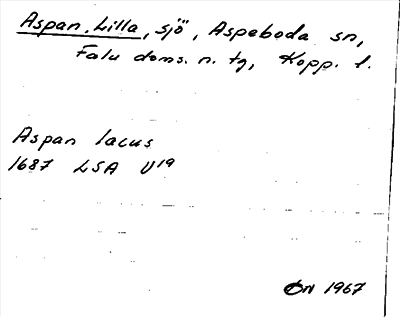 Aspan, Lilla, sjö, Aspeboda sn,
Falu doms. n. tg, Kopp. l.
Aspan lacus
1687 LSA U19
ON 1967